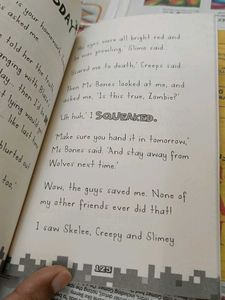 ODAY
is your homework,'
asked me.
told her the truth
anging with Brian
lay, then I'd
t lying would
like last
blurted out
too.'
eyes were all bright red and
prowling,' Slimo said.
'Scared to death,' Creeps said.
Then Ms Bones looked at me, and
asked me, 'Is this true, Zombie?'
'Uh huh,' I SQUEAKED.
'Make sure you hand it in tomorrow,'
Ms Bones said. 'And stay away from
Wolves next time.'
Wow, the guys saved me. None of
my other friends ever did that!
I saw Skelee, Creepy and Slimey
125